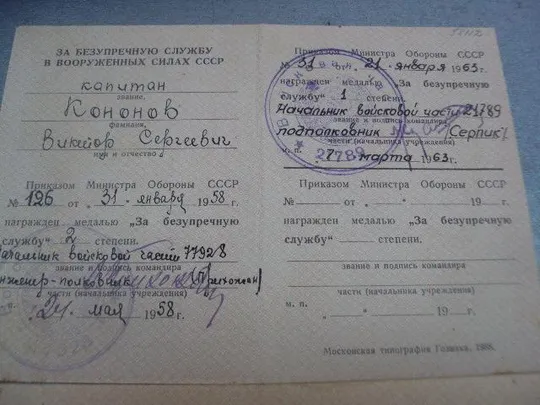 ЗА БЕЗУПРЕЧНУЮ СЛУЖБУ
В ВООРУЖЕННЫХ СИЛАХ СССР
капитан
звание,
Кононов
фамилия,
Виктор Сергеевич
имя и отчество
Приказом Министра Обороны СССР
№ 126 от "31" января 1958 г.
награжден медалью „За безупречную
службу“ 2 степени.
Начальник войсковой части 77928
звание и подпись командира
инженер-полковник
части (начальника учреждения)
"24" мая 1958 г.
Приказом Министра Обороны СССР
№ 31 от "21" января 1963 г.
награжден медалью „За безупречную
службу“ 1 степени.
Начальник войсковой части 21789
звание и подпись командира
подполковник (Серпик)
части (начальника учреждения)
м. п. "7" марта 1963 г.
21789
Приказом Министра Обороны СССР
№ от 19 г.
награжден медалью „За безупречную
службу“ степени.
звание и подпись командира
части (начальника учреждения)
м. п. " " 19 г.
Московская типография Гознака. 1958.